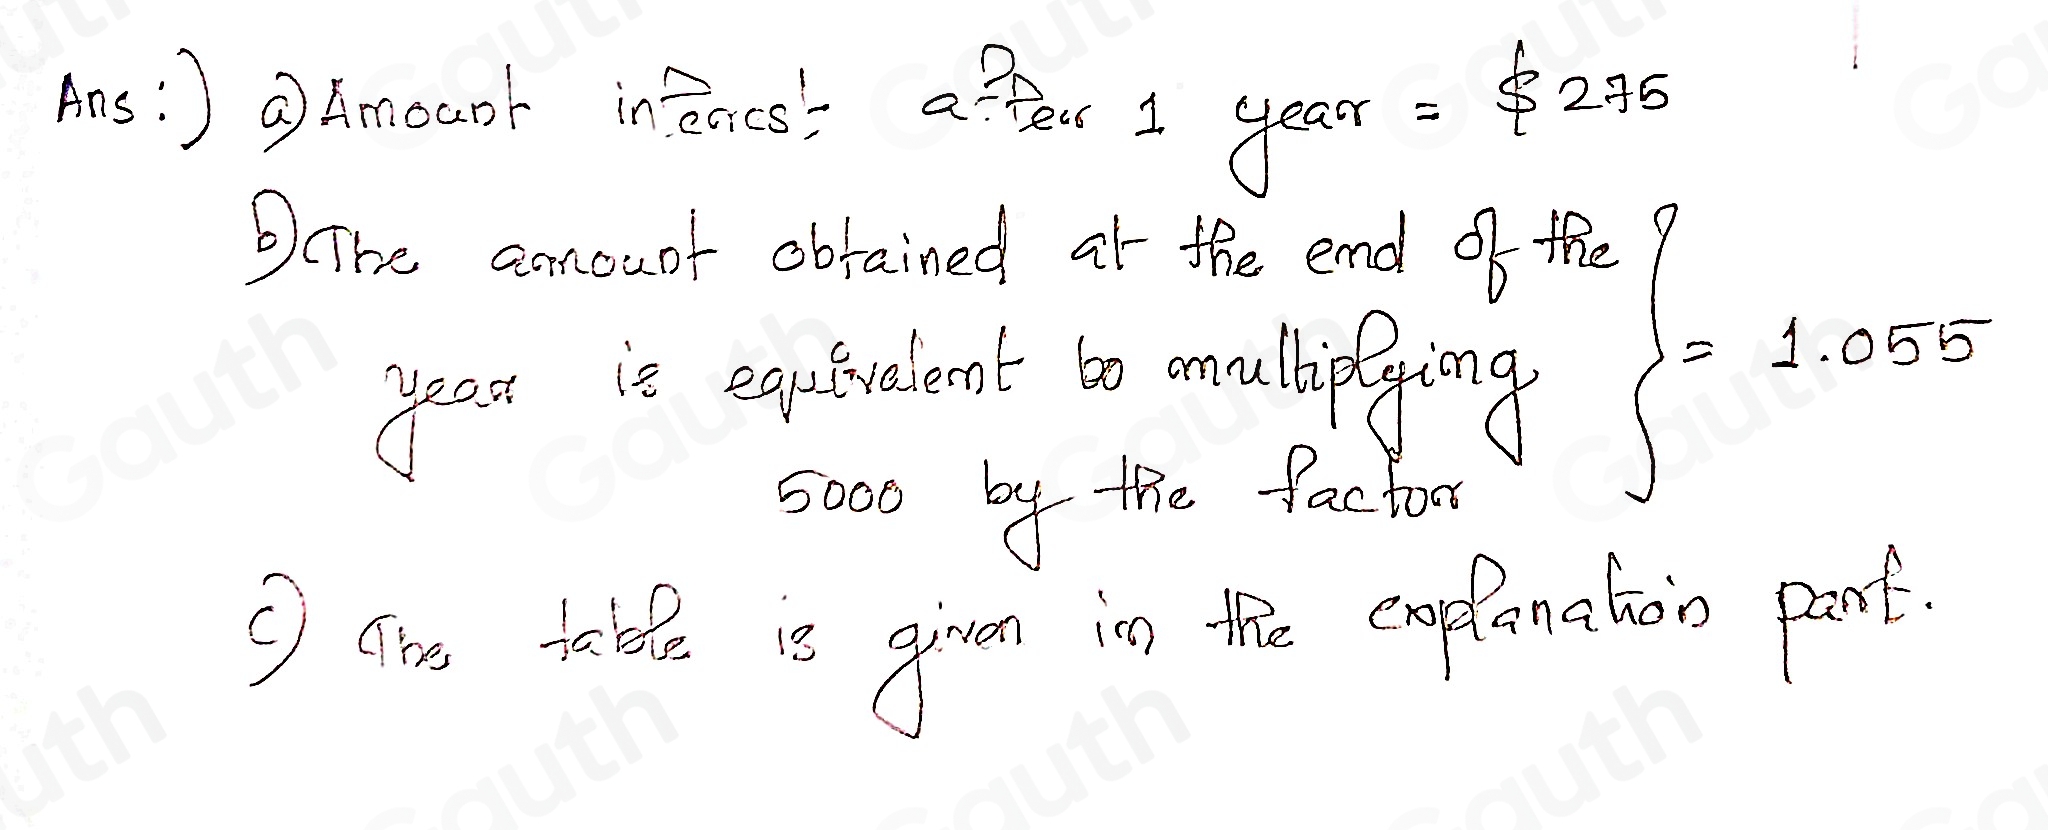 Ans:) a) Amount interest after 1 year = $ 275
b) The amount obtained at the end of the
year is equivalent to multiplying } = 1.055
5000 by the factor
c) The table is given in the explanation part.
Gauth